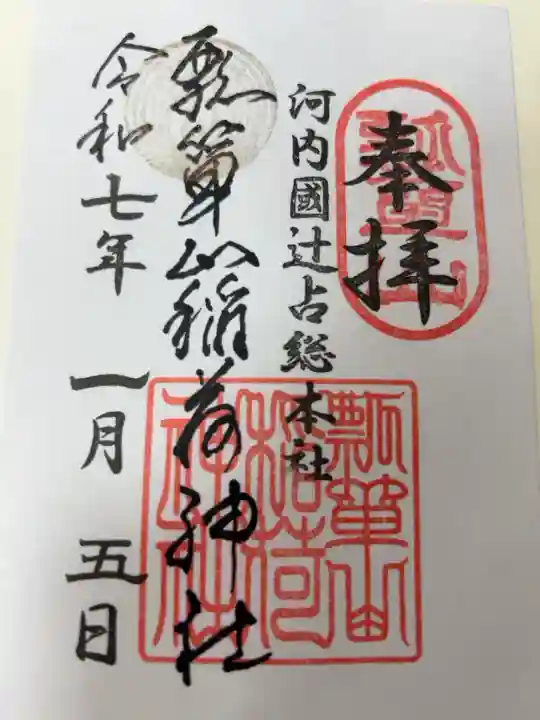 奉拝
河内國辻占総本社
瓢箪山稲荷神社
令和七年 一月 五日
瓢箪山
稲荷
神社